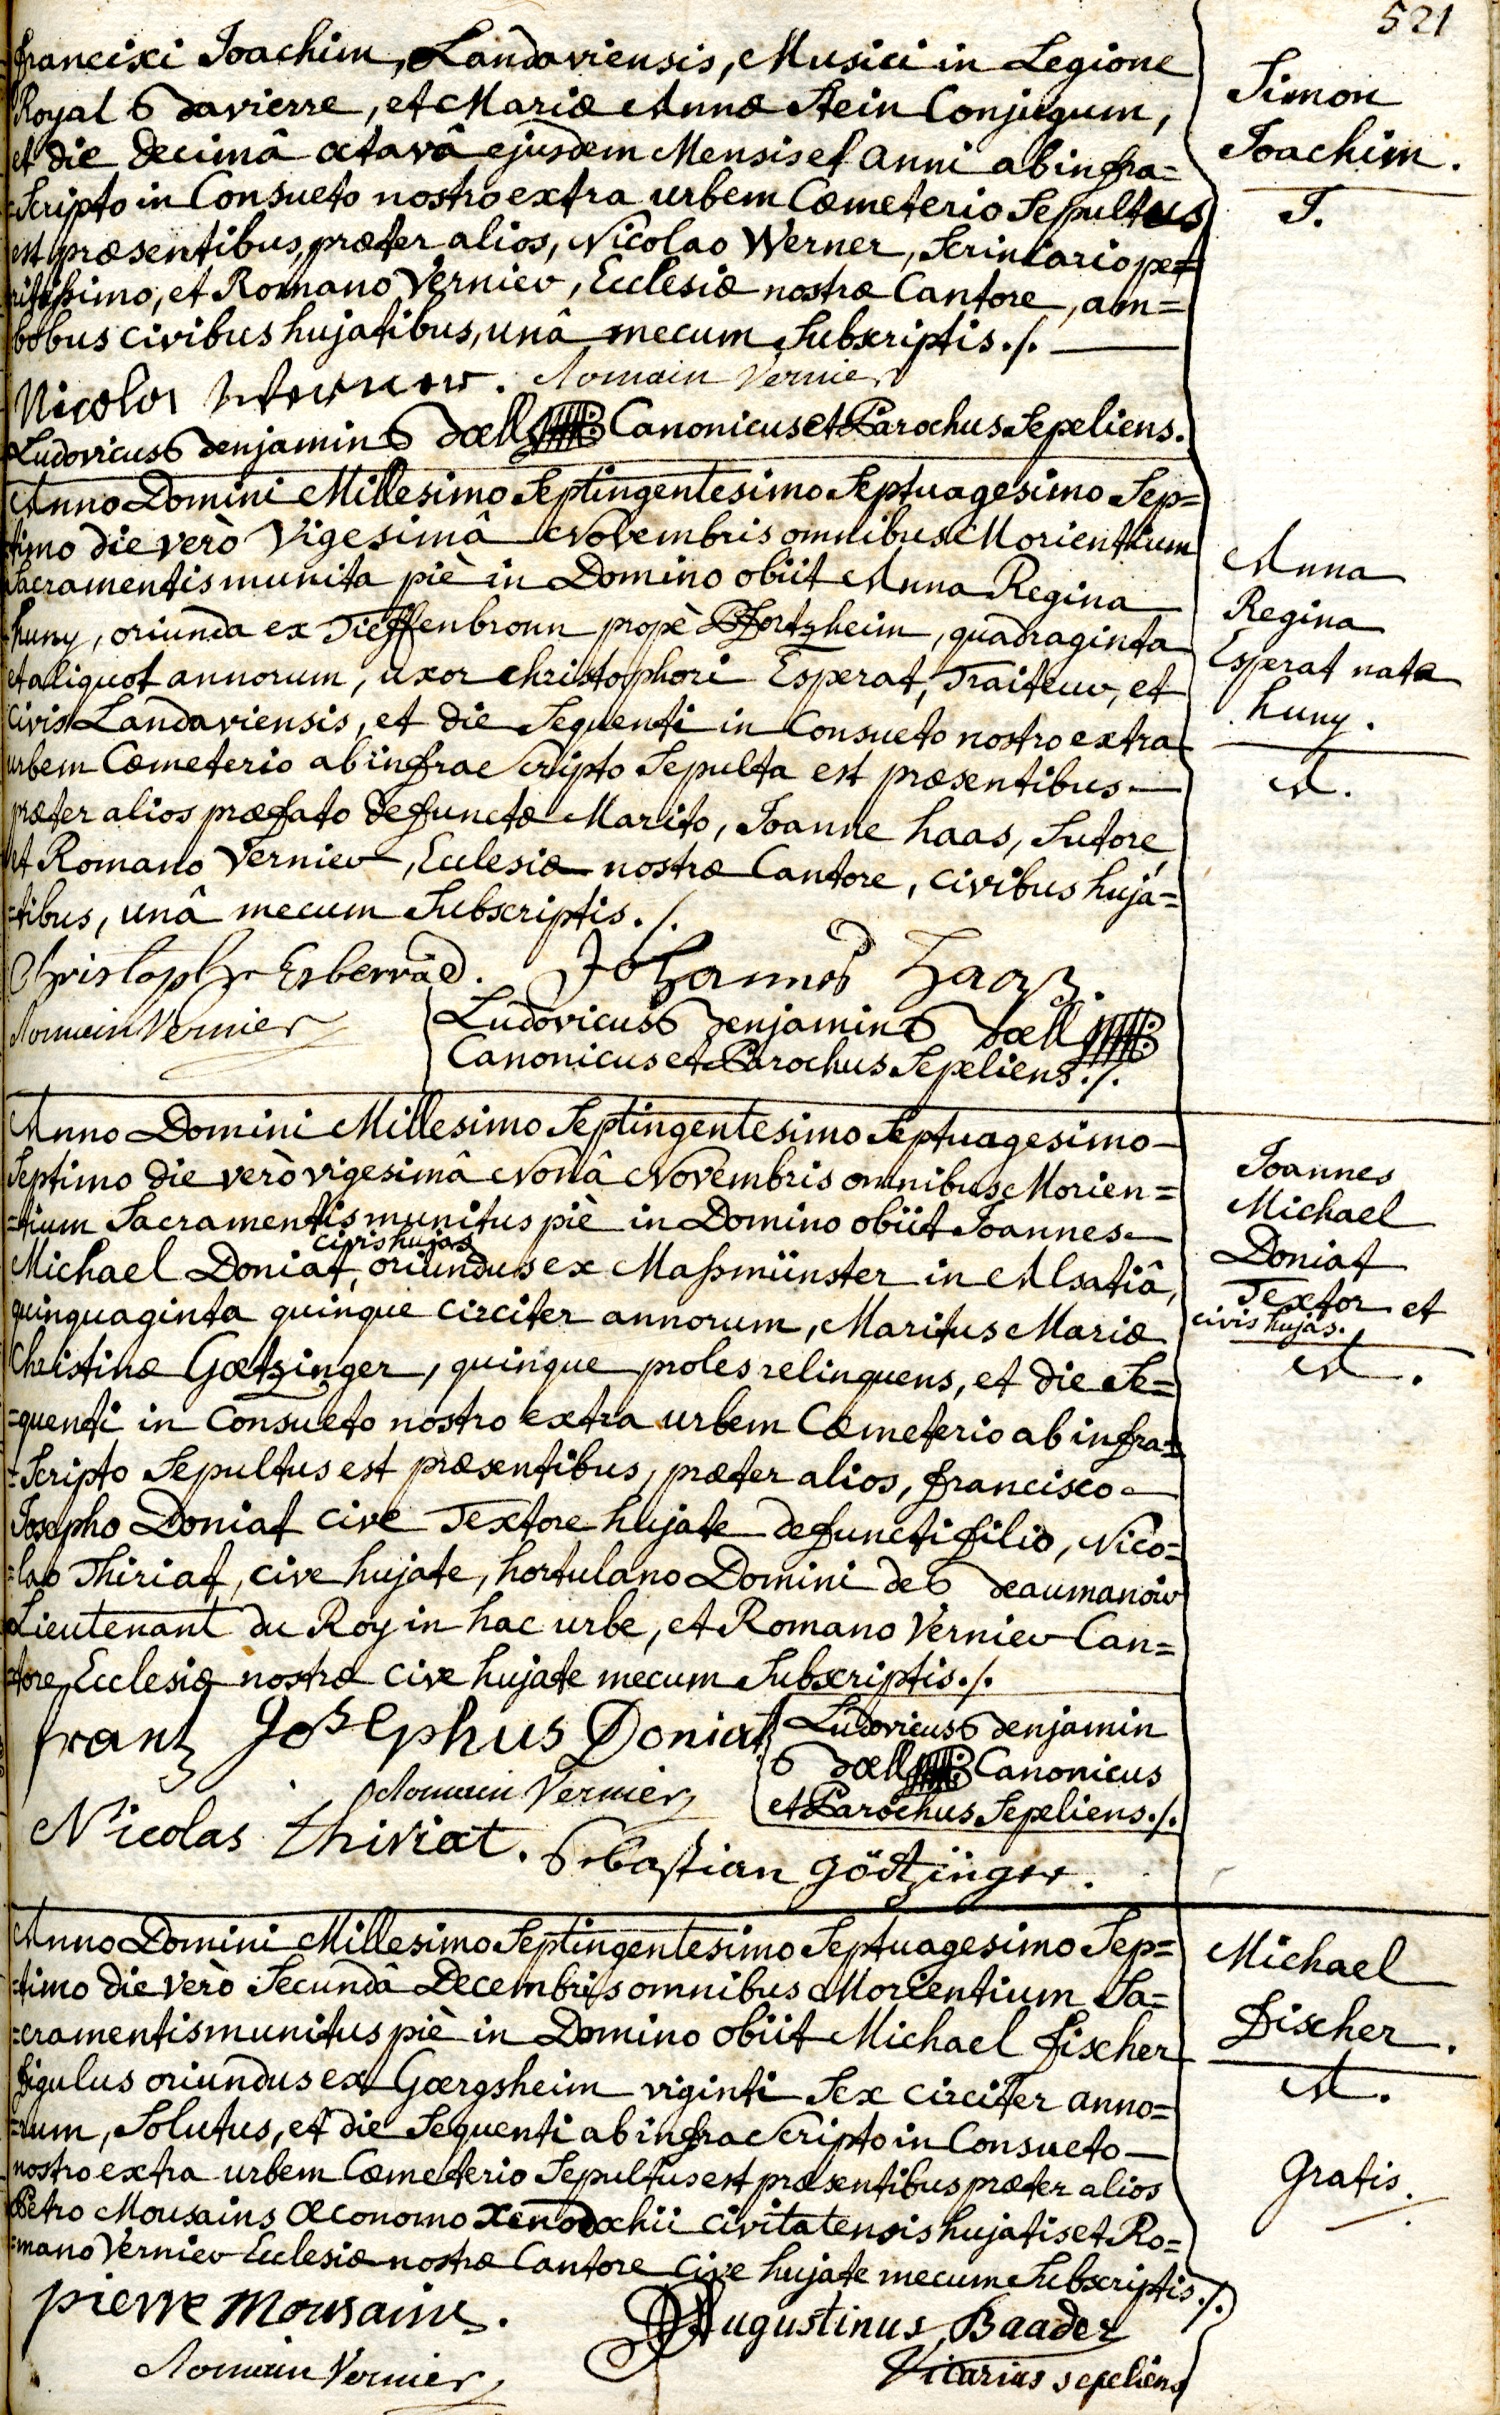 521
Francisci Joachim, Landaviensis, Musici in Legione
Royal Bavierre, et Mariæ Annæ Stein Conjugum,
et die decimâ octavâ ejusdem Mensis et anni ab infra=
=Scripto in Consueto nostro extra urbem Cœmeterio Sepultus
est præsentibus, præter alios, Nicolao Werner, Scriniario pe=
ritissimo, et Romano Vernier, Ecclesiæ nostræ Cantore, am=
bobus civibus hujatibus, unâ mecum Subscriptis./.
Simon
Joachim.
J.
Nicolos Werner. Romain Vernier
Ludovicus Benjamin Bœll Canonicus et Parochus Sepeliens.
Anno Domini Millesimo Septingentesimo Septuagesimo Sep=
timo die verò Vigesimâ Novembris omnibus Morientium
Sacramentis munita piè in Domino obiit Anna Regina
huny, oriunda ex Tieffenbronn propè Pfortzheim, quadraginta
et aliquot annorum, uxor Christophori Esperat, Traiteur, et
Civis Landaviensis, et die Sequenti in Consueto nostro extra
urbem Cœmeterio ab infra Scripto Sepulta est præsentibus
præter alios præfato defunctæ Marito, Joanne haas, Sutore,
et Romano Vernier, Ecclesiæ nostræ Cantore, civibus huja=
=tibus, unâ mecum Subscriptis./.
Anna
Regina
Esperat nata
huny.
A.
Christoph Esberrad. Johannes Haas.
Romain Vernier
Ludovicus Benjamin Bœll
Canonicus et Parochus Sepeliens./.
Anno Domini Millesimo Septingentesimo Septuagesimo
Septimo die verò vigesimâ Nonâ Novembris omnibus Morien=
=tium Sacramentis munitus piè in Domino obiit Joannes
civis hujas
Michael Doniat, oriundus ex Massmünster in Alsatiâ,
quinquaginta quinque circiter annorum, Maritus Mariæ
Christinæ Gœtzinger, quinque proles relinquens, et die Se=
=quenti in Consueto nostro extra urbem Cœmeterio ab infra=
=Scripto Sepultus est præsentibus, præter alios, Francisco
Josepho Doniat cive Textore hujate defuncti filio, Nico=
=lao Thiriat, cive hujate, hortulano Domini de Beaumanoir
Lieutenant du Roy in hac urbe, et Romano Vernier Can=
=tore Ecclesiæ nostræ cive hujate mecum Subscriptis./.
Joannes
Michael
Doniat
Textor et
civis hujas.
A.
frantz Josephus Doniat
Ludovicus Benjamin
Bœll Canonicus
et Parochus Sepeliens./.
Romain Vernier
Nicolas thiriat. Sebastian Götzinger.
Anno Domini Millesimo Septingentesimo Septuagesimo Sep=
=timo die verò Secundâ Decembris omnibus Morientium Sa=
=cramentis munitus piè in Domino obiit Michael Fischer
figulus oriundus ex Gœrgsheim viginti Sex circiter anno=
=rum, Solutus, et die Sequenti ab infra Scripto in Consueto
nostro extra urbem Cœmeterio Sepultus est præsentibus præter alios
Petro Mousains Œconomo Xenodochii civitatensis hujatis et Ro=
=mano Vernier Ecclesiæ nostræ Cantore cive hujate mecum Subscriptis./.
Michael
Fischer.
A.
Gratis.
pierre Mousains.
Augustinus Baader
Vicarius sepeliens
Romain Vernier